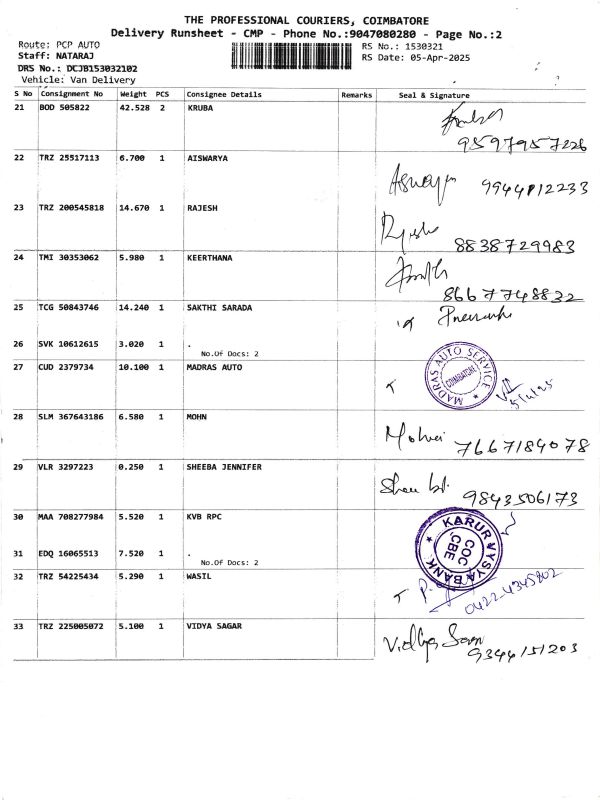 THE PROFESSIONAL COURIERS, COIMBATORE
Delivery Runsheet - CMP - Phone No.:9047080280 - Page No.:2
Route: PCP AUTO RS No.: 1530321
Staff: NATARAJ RS Date: 05-Apr-2025
DRS No.: DCJB153032102
Vehicle: Van Delivery
S No Consignment No Weight PCS Consignee Details Remarks Seal & Signature
21 BOD 505822 42.528 2 KRUBA
9597957226
22 TRZ 25517113 6.700 1 AISWARYA
Aswarya 9944812233
23 TRZ 200545818 14.670 1 RAJESH
Rajesh
8838729983
24 TMI 30353062 5.980 1 KEERTHANA
8667748832
25 TCG 50843746 14.240 1 SAKTHI SARADA
26 SVK 10612615 3.020 1 .
No.Of Docs: 2
27 CUD 2379734 10.100 1 MADRAS AUTO
MADRAS AUTO SERVICE
COIMBATORE
5/4/25
28 SLM 367643186 6.580 1 MOHN
7667184078
29 VLR 3297223 0.250 1 SHEEBA JENNIFER
9843506173
30 MAA 708277984 5.520 1 KVB RPC
KARUR VYSYA BANK
COC, CBE
31 EDQ 16065513 7.520 1 .
No.Of Docs: 2
32 TRZ 54225434 5.290 1 WASIL
0422-4345802
33 TRZ 225005072 5.100 1 VIDYA SAGAR
9344151203